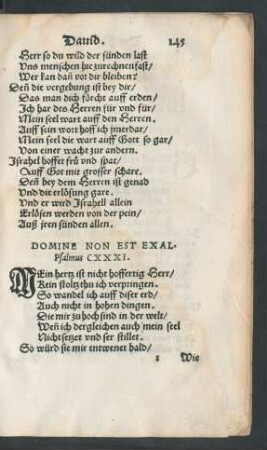 Dauid. 145
Herr so du wild der sünden last
Vns menschen hie zurechnen fast/
Wer kan dañ vor dir bleiben?
Deñ die vergebung ist bey dir/
Das man dich förcht auff erden/
Ich har des Herren für vnd für/
Mein seel wart auff den Herren.
Auff sein wort hoff ich jmerdar/
Mein seel die wart auff Gott so gar/
Von einer wacht zur andern.
Israhel hoffet frů vnd spat/
Auff Got mit grosser schare.
Deñ bey dem Herren ist genad
Vnd die erlösung gare.
Vnd er wird Israhell allein
Erlösen werden von der pein/
Auß jren sünden allen.
DOMINE NON EST EXAL.
Psalmus CXXXI.
MEin hertz ist nicht hoffertig Herr/
Kein stoltz thu ich verpringen.
So wandel ich auff diser erd/
Auch nicht in hohen dingen.
Die mir zu hoch sind in der welt/
Weñ ich dergleichen auch mein seel
Nicht setzet vnd ser stillet.
So würd sie mir entwenet bald/
Wie